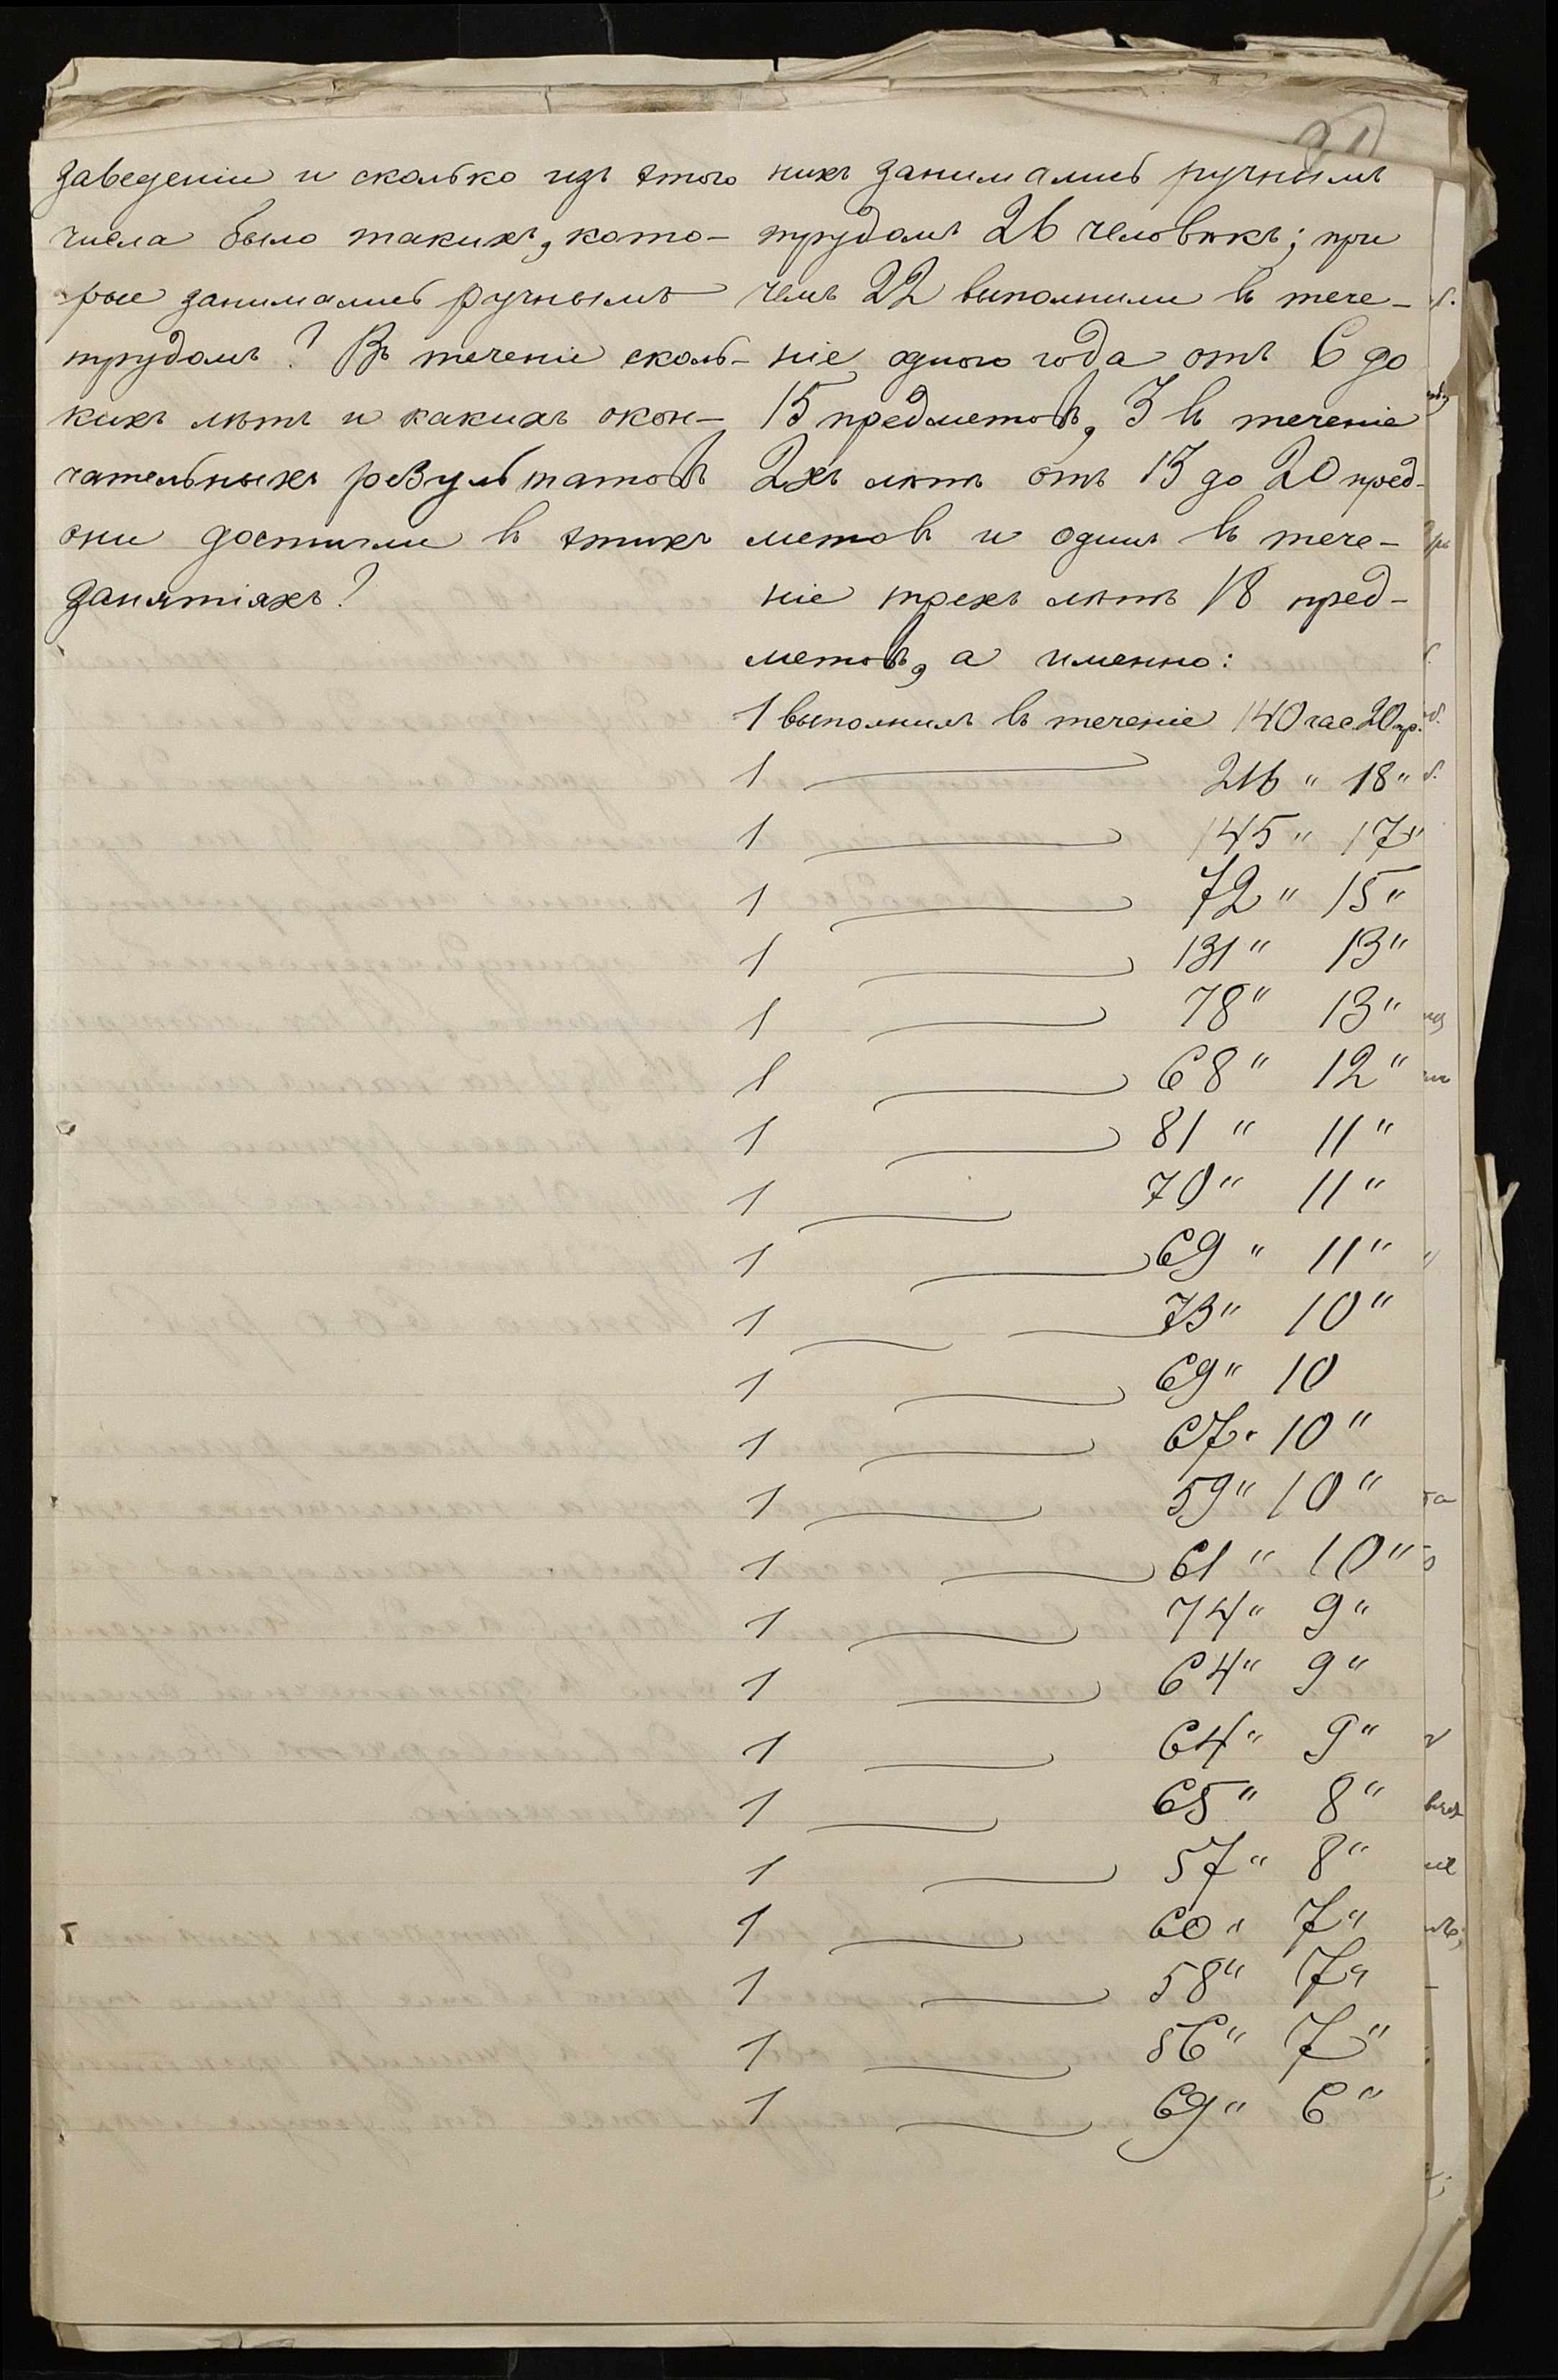 заведенiи и сколько изъ этого
числа было такихъ, кото-
рые занимались ручнымъ
трудомъ? Въ теченiе сколь-
кихъ лѣтъ и какихъ окон-
чательныхъ результатовъ
они достигли въ этихъ
занятiяхъ?
никъ занимались ручнымъ
трудомъ 26 человѣкъ; при
чемъ 22 выполнили въ тече-
нiе одного года отъ 6 до
15 предметовъ, 3 въ теченiе
2хъ лѣтъ отъ 13 до 20 пред-
метовъ и одинъ въ тече-
нiе трехъ лѣтъ 18 пред-
метовъ, а именно:
1 выполнилъ въ теченiе 140 час 20 пр.
1 — 216 " 18 "
1 — 145 " 17 "
1 — 72 " 15 "
1 — 131 " 13 "
1 — 78 " 13 "
1 — 68 " 12 "
1 — 81 " 11 "
1 — 70 " 11 "
1 — 69 " 11 "
1 — 73 " 10 "
1 — 69 " 10
1 — 67 " 10 "
1 — 59 " 10 "
1 — 61 " 10 "
1 — 74 " 9 "
1 — 64 " 9 "
1 — 64 " 9 "
1 — 65 " 8 "
1 — 57 " 8 "
1 — 60 " 7 "
1 — 58 " 7 "
1 — 56 " 7 "
1 — 69 " 6 "